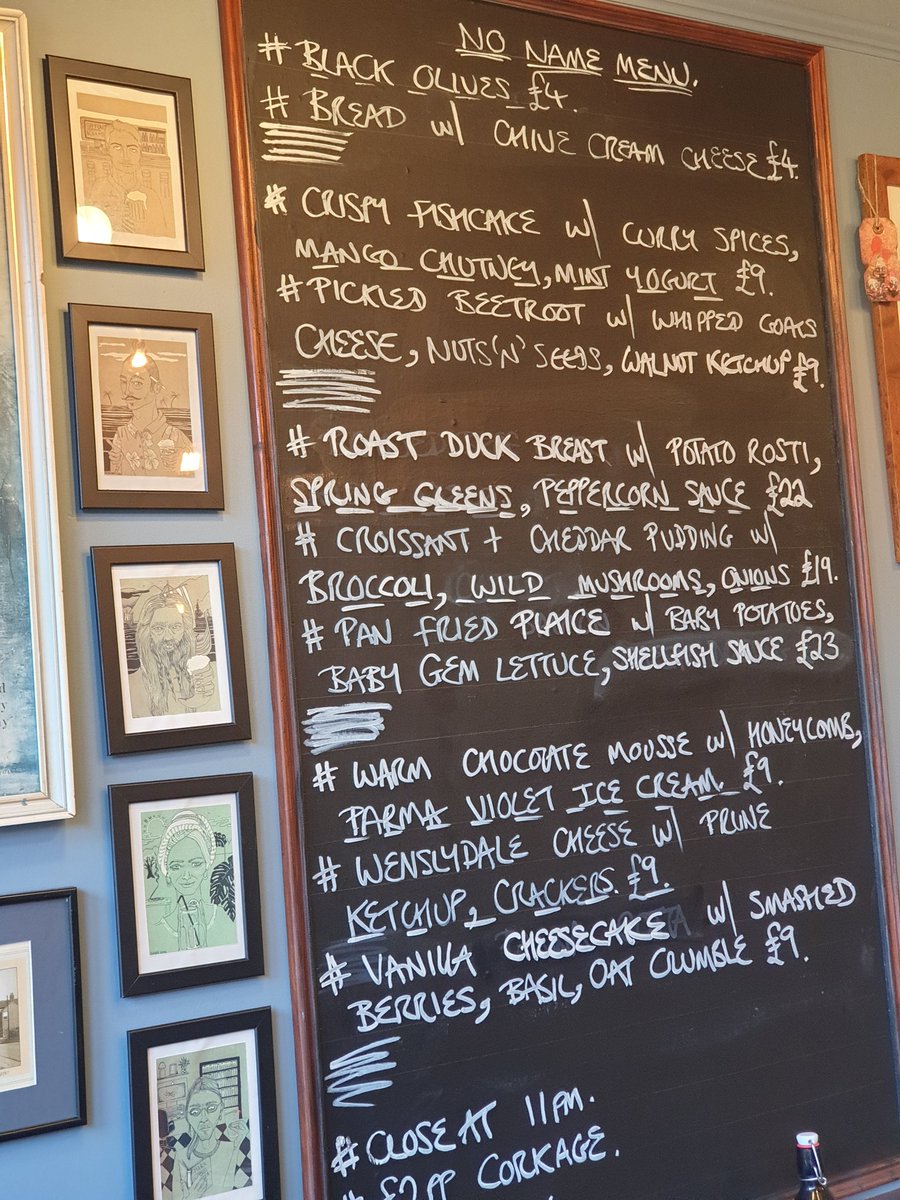 NO NAME MENU.
# BLACK OLIVES £4.
# BREAD w/ CHIVE CREAM CHEESE £4.
# CRISPY FISHCAKE w/ CURRY SPICES,
MANGO CHUTNEY, MINT YOGURT £9.
# PICKLED BEETROOT w/ WHIPPED GOATS
CHEESE, NUTS'N'SEEDS, WALNUT KETCHUP £9.
# ROAST DUCK BREAST w/ POTATO ROSTI,
SPRING GREENS, PEPPERCORN SAUCE £22
# CROISSANT + CHEDDAR PUDDING w/
BROCCOLI, WILD MUSHROOMS, ONIONS £19.
# PAN FRIED PLAICE w/ BABY POTATOES,
BABY GEM LETTUCE, SHELLFISH SAUCE £23
# WARM CHOCOLATE MOUSSE w/ HONEYCOMB,
PARMA VIOLET ICE CREAM £9.
# WENSLYDALE CHEESE w/ PRUNE
KETCHUP, CRACKERS. £9.
# VANILLA CHEESECAKE w/ SMASHED
BERRIES, BASIL, OAT CRUMBLE £9.
# CLOSE AT 11PM.
# £2PP CORKAGE.